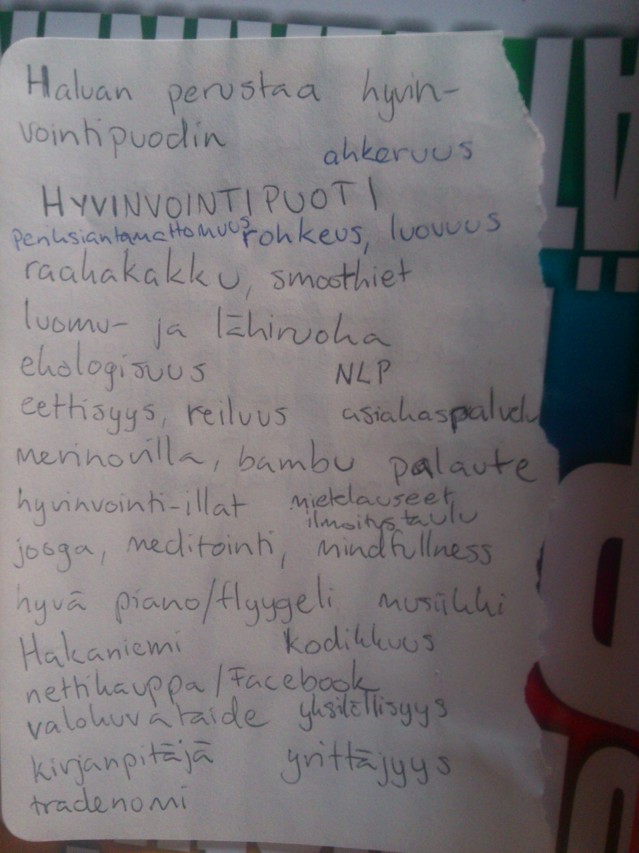 Haluan perustaa hyvin-
vointipuodin
ahkeruus
HYVINVOINTIPUOTI
periksiantamattomuus rohkeus, luovuus
raakakakku, smoothiet
luomu- ja lähiruoka
ekologisuus NLP
eettisyys, reiluus asiakaspalvelu
merinovilla, bambu palaute
hyvinvointi-illat mietelauseet
ilmoitustaulu
jooga, meditointi, mindfullness
hyvä piano/flyygeli musiikki
Hakaniemi kodikkuus
nettikauppa/Facebook
valokuvataide yksilöllisyys
kirjanpitäjä yrittäjyys
tradenomi